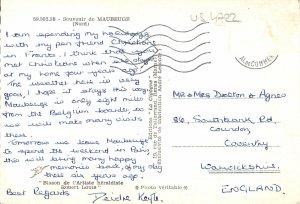 59.503.58 - Souvenir de MAUBEUGE
(Nord)
I am spending my holidays
with my pen friend Christiane
in France. I think that you
met Christiane when she stayed
at my home four years ago.
The weather here is very
good, I hope it stays this way.
Maubeuge is only eight miles
from the Belgium boarder, so
we will make many visits
there.
Tomorrow we leave Maubeuge
to spend the weekend in Paris
this will bring many happy
memories back of my stay
there six years ago.
Blason de l'Artiste héraldiste
Robert Louis
Best Regards
Deirdre
© Photo véritable
US 4702
Mr & Mrs Docton & Agnes
86, Southbank Rd,
Coundon
Coventry
Warwickshire,
ENGLAND.